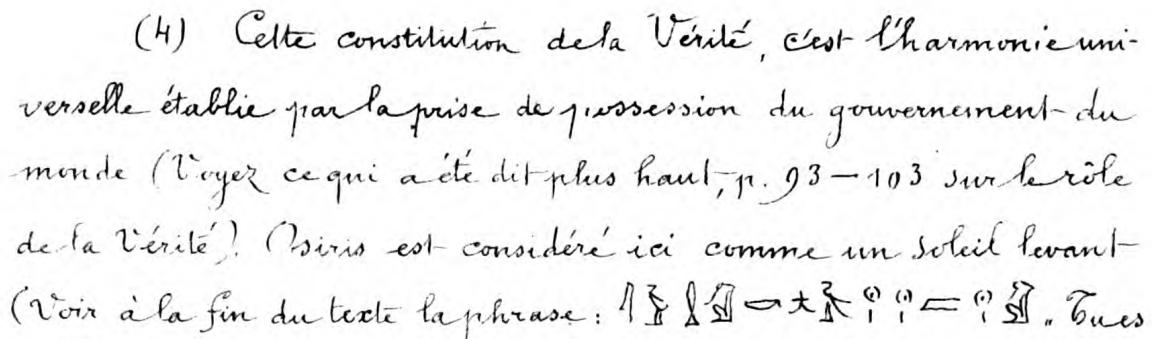 (4) Cette constitution de la Vérité, c'est l'harmonie uni-
verselle établie par la prise de possession du gouvernement du
monde (Voyez ce qui a été dit plus haut, p. 93 — 103 sur le rôle
de la Vérité). Osiris est considéré ici comme un soleil levant
(Voir à la fin du texte la phrase : „ Tu es